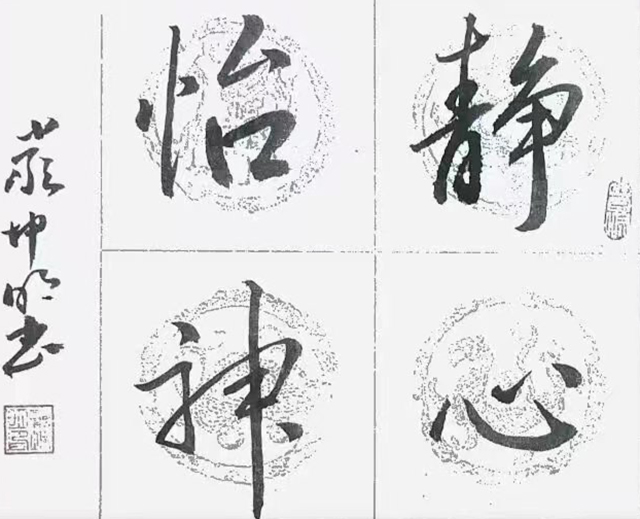 静心
怡神
坤明书